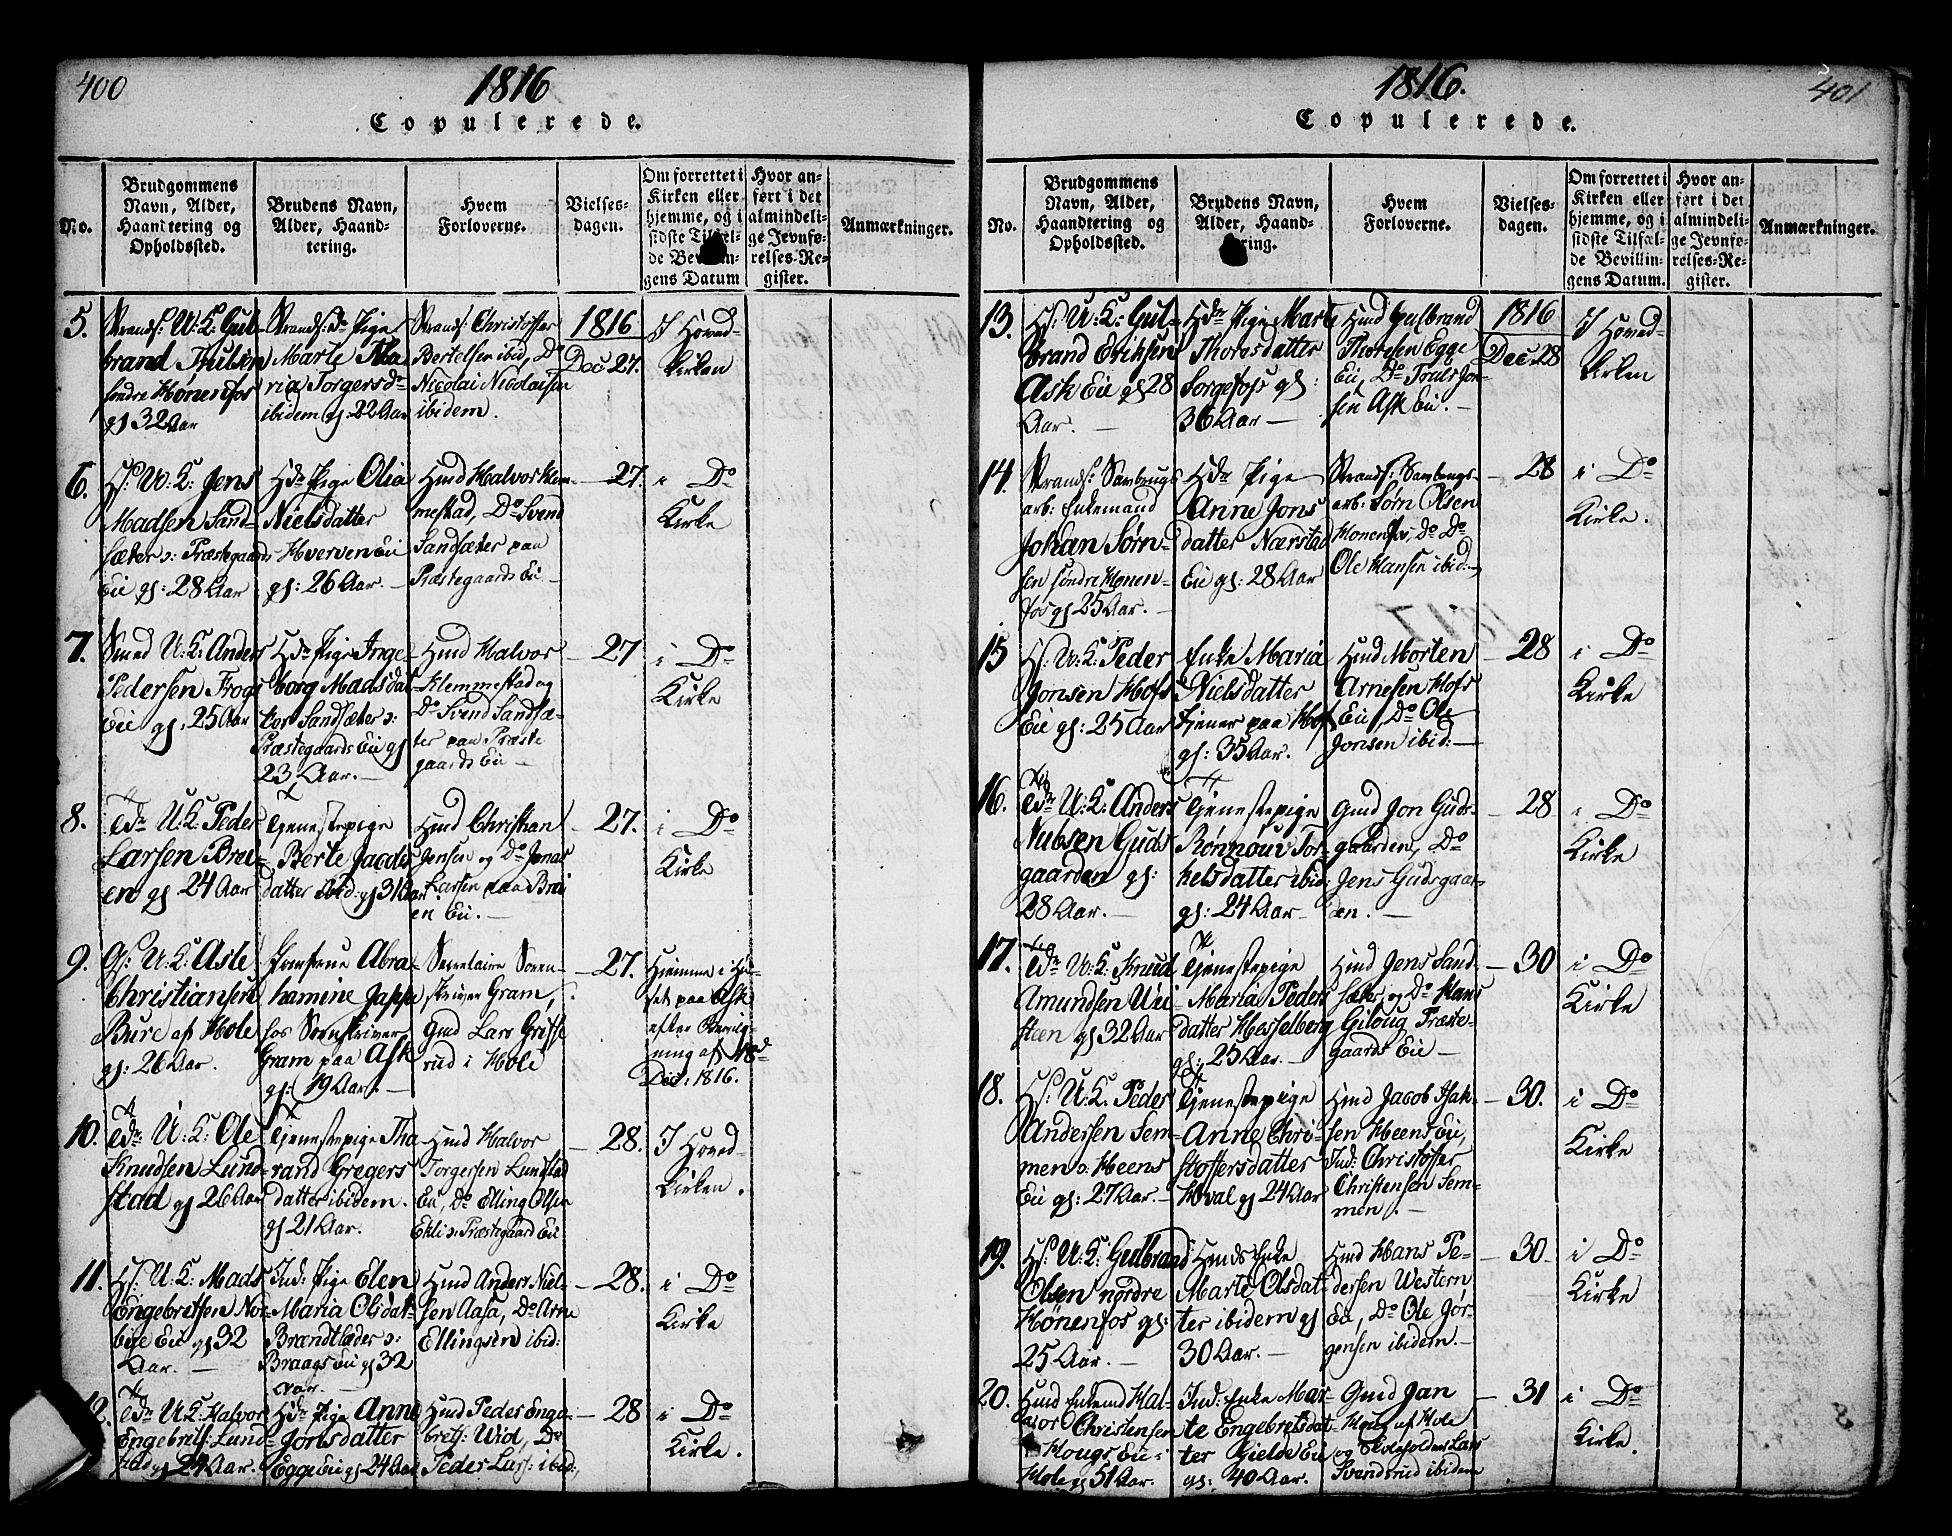 400
1816
Copulerede.
No.
Brudgommens
Navn, Alder,
Haandtering og
Opholdssted.
Brudens Navn,
Alder, Haand-
tering.
Hvem
Forloverne.
Vielses-
dagen.
Om forrettet i
Kirken eller
hjemme, og i
sidste Tilfæl-
de Bevillin-
gens Datum
Hvor an-
ført i det
almindeli-
ge Jevnfø-
relses-Re-
gister.
Anmærkninger.
5.
Strandf: U: K: Gul-
brand
søndre Hønenfos
gl 32 Aar
Strandf: Dr Pige
Marte Ma
ria Torgersd
ibidem gl: 22 Aar
Strandf Christoffer
Bertelsen ibid, Do
Nicolai Nicolaisen
ibidem.
1816
Dec 27.
I Hoved-
Kirken
6.
Hf: U: K: Jens
Madsen Sand-
sæter o: Præstegaards
Eie gl: 28 Aar
Hdr Pige Olia
Nielsdatter
Hverven Eie
gl: 26 Aar. —
Hmd Halvor Klem-
mestad, Do Svend
Sandsæter paa
Præstegaards Eie —
27.
i Do
Kirke
7.
Smed U: K: Anders
Pedersen Frogs
Eie gl: 25 Aar
Hdr Pige Inge-
borg Madsdat-
ter Sandsæter o:
Præstegaards Eie gl
23 Aar. —
Hmd Halvor
Klemmestad og
Do Svend Sandsæ-
ter paa Præste
gaards Eie —
27
i Do
Kirke
8.
U: K: Peder
Larsen Brei-
en gl 24 Aar
Tjenestepige
Berte Jacobs
datter ibid: gl 31 Aar
Hmd Christian
Jensen og Do Jonas
Larsen paa Brei
en Eie. —
27.
i Do
Kirke
9.
Gf: U: K: Asle
Christiansen
Bure af Hole
gl: 26 Aar.
Jomfrue Abra
hamine Jappe
hos Sorenskriver
Gram paa Ask
gl: 19 Aar. —
Secretaire Soren-
skriver Gram,
Gmd Lars Griffe
rud i Hole
27.
Hjemme i Hu-
set paa Ask
efter Bevilg-
ning af 18d
Dec: 1816.
10.
U: K: Ole
Knudsen Lund-
stad gl 26 Aar
Tjenestepige Tha
rand Gregers
datter ibidem.
gl 21 Aar.
Hmd Halvor
Torgersen Lundstad
Eie, Do Elling Olsen
Ekli o: Præstegaard Eie
28.
I Hoved-
Kirken.
11.
Hf: U: K: Mads
Engebretsen
Eie gl 32
Aar. —
Ind: Pige Elen
Maria Olsdat-
Brændtlæder o:
Braags Eie gl 32
Aar. —
Hmd Anders Niel-
sen Aasa, Do Arne
Ellingsen ibid:
28.
i Do
Kirke
12.
U: K: Halvor
Engebretf: Lund-
stad gl 24 Aar.
Hdr Pige Anne
Jorisdatter
Egge Eie gl 24 Aar
Hmd Peder Enge-
bretf: Wiol, Do
Peder Larf: ibid:
28
i Do
Kirke.
1816.
401
Copulerede.
No.
Brudgommens
Navn, Alder,
Haandtering og
Opholdssted.
Brudens Navn,
Alder, Haand-
tering.
Hvem
Forloverne.
Vielses-
dagen.
Om forrettet i
Kirken eller
hjemme, og i
sidste Tilfæl-
de Bevillin-
gens Datum.
Hvor an-
ført i det
almindeli-
ge Jevnfø-
relses-Re-
gister.
Anmærkninger.
13.
Hf: U: K: Gul-
brand Eriksen
Ask Eie gl 28
Aar. —
Hdr Pige Marte
Thoresdatter
Sorgefos gl:
36 Aar —
Hmd Gulbrand
Thoresen Egge
Eie, Do Truls Jon-
sen Ask Eie. —
1816
Dec 28
I Hoved-
Kirken
14.
Strandf: Saugbrugs
arb: Enkemand
Johan Sørn-
sen søndre Hønen-
fos gl 25 Aar. —
Hdr Pige
Anne Jons
datter Nærstad
Eie gl: 28 Aar
Strandf: Saugbrugs-
arb: Sørn Olsen
Hønenfos, Do Do
Ole Hansen ibid: —
28
i Do
Kirke.
15
Hf: U: K: Peder
Jonsen Hofs
Eie gl: 25 Aar
Enke Maria
Nielsdatter
tjener paa Hof
gl: 35 Aar.
Hmd Morten
Arnesen Hofs
Eie, Do Ole
Jonsen ibid: —
28
i Do
Kirke
16.
U: K: Anders
Nubsen Guds
gaarden gl:
28 Aar. —
Tjenestepige
Rønnouv Tor-
kelsdatter ibid:
gl: 24 Aar —
Gmd Jon Guds-
gaarden, Do
Jens Gudsgaar-
den. —
28
i Do
Kirke
17.
U: K: Knud
Amundsen Vei-
steen gl 32 Aar
Tjenestepige
Maria Peders
datter Hesselberg
gl: 25 Aar. —
Hmd Jens Sand-
sæter, og Do Hans
Giloug Præste-
gaards Eie —
30
i Do
Kirke
18.
Hf: U: K: Peder
Andersen Sem-
men o: Heens
Eie gl: 27 Aar. —
Tjenestepige
Anne Chri-
stoffersdatter
Hval gl 24 Aar
Hmd Jacob Isak-
sen Heens Eie,
Ind: Christoffer
Christensen Sem-
men. —
30.
i Do
Kirke
19.
Hf: U: K: Gulbrand
Olsen nordre
Hønenfos gl:
25 Aar. —
Hmds Enke
Marte Olsdat-
ter ibidem gl
30 Aar. —
Hmd Hans Pe-
dersen Western
Eie, Do Ole Jør-
gensen ibidem. —
30
i Do
Kirke
20.
Hmd Enkemd Hal-
vor Christensen
Hougs Eie i
Hole gl 51 Aar.
Ind: Enke Mar-
te Engebretsdat-
ter Gjelde Eie
gl: 40 Aar.
Gmd Jan
Houg af Hole
og Lars
Svendsrud ibidem
31
i Do
Kirke.